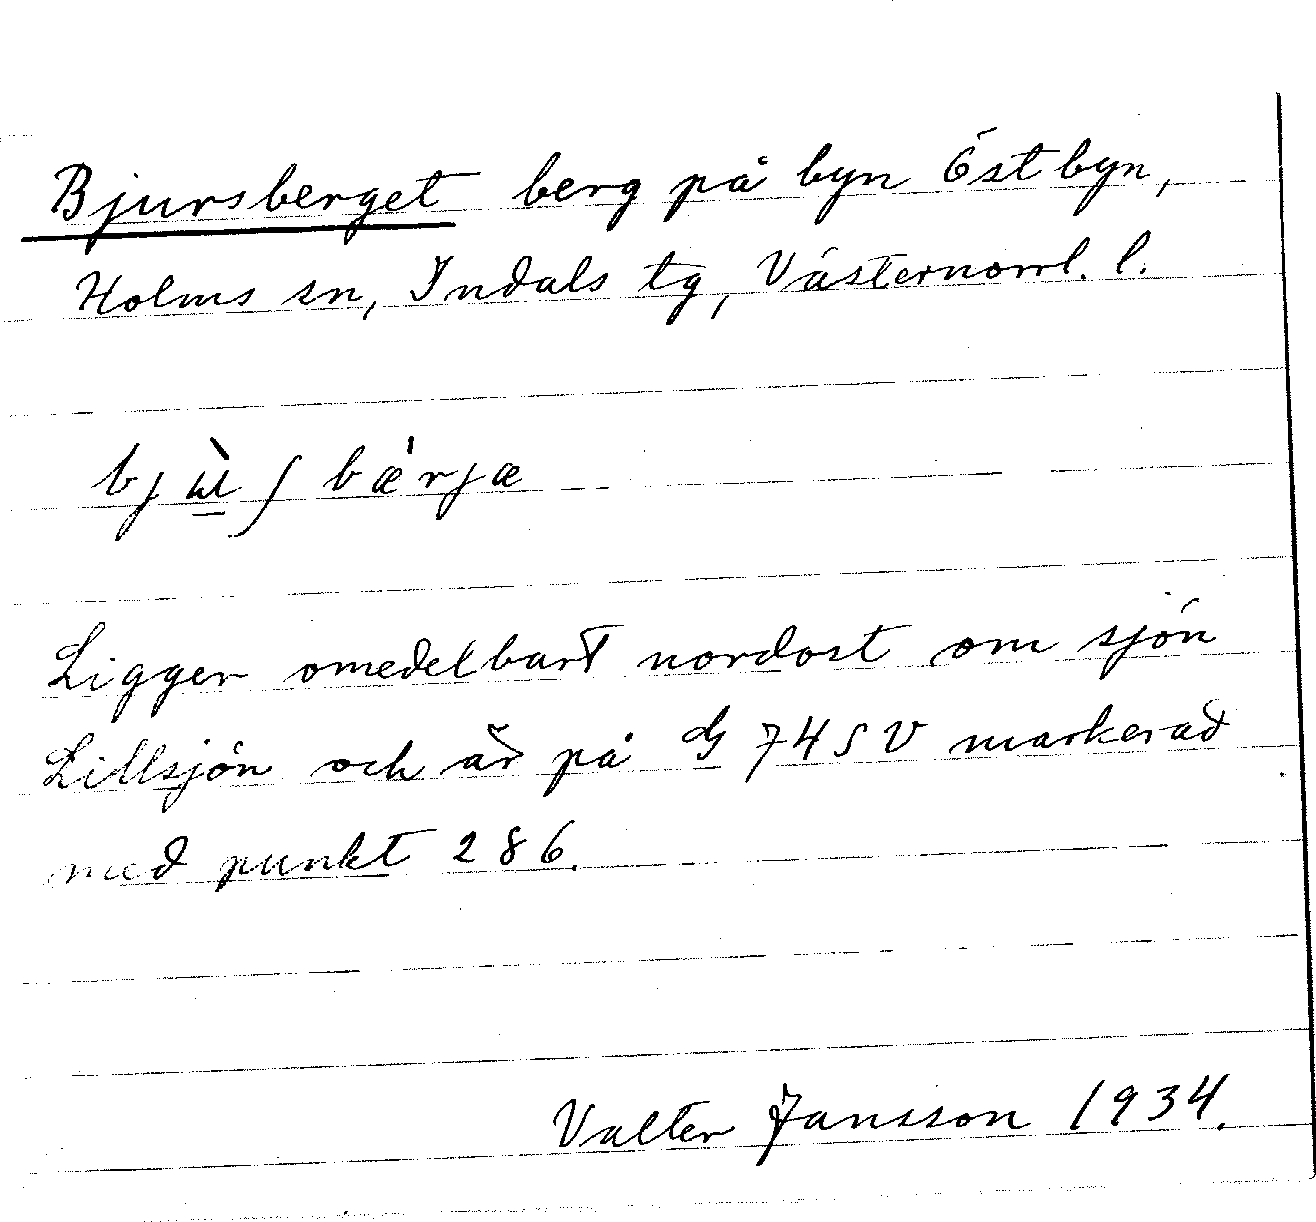 Bjursberget berg på byn Östbyn,
Holms sn, Indals tg, Västernorrl. l.
bjɯ̀ʃbæ'rjæ
Ligger omedelbart nordost om sjön
Lillsjön och är på G 74 SV markerad
med punkt 286.
Valter Jansson 1934.